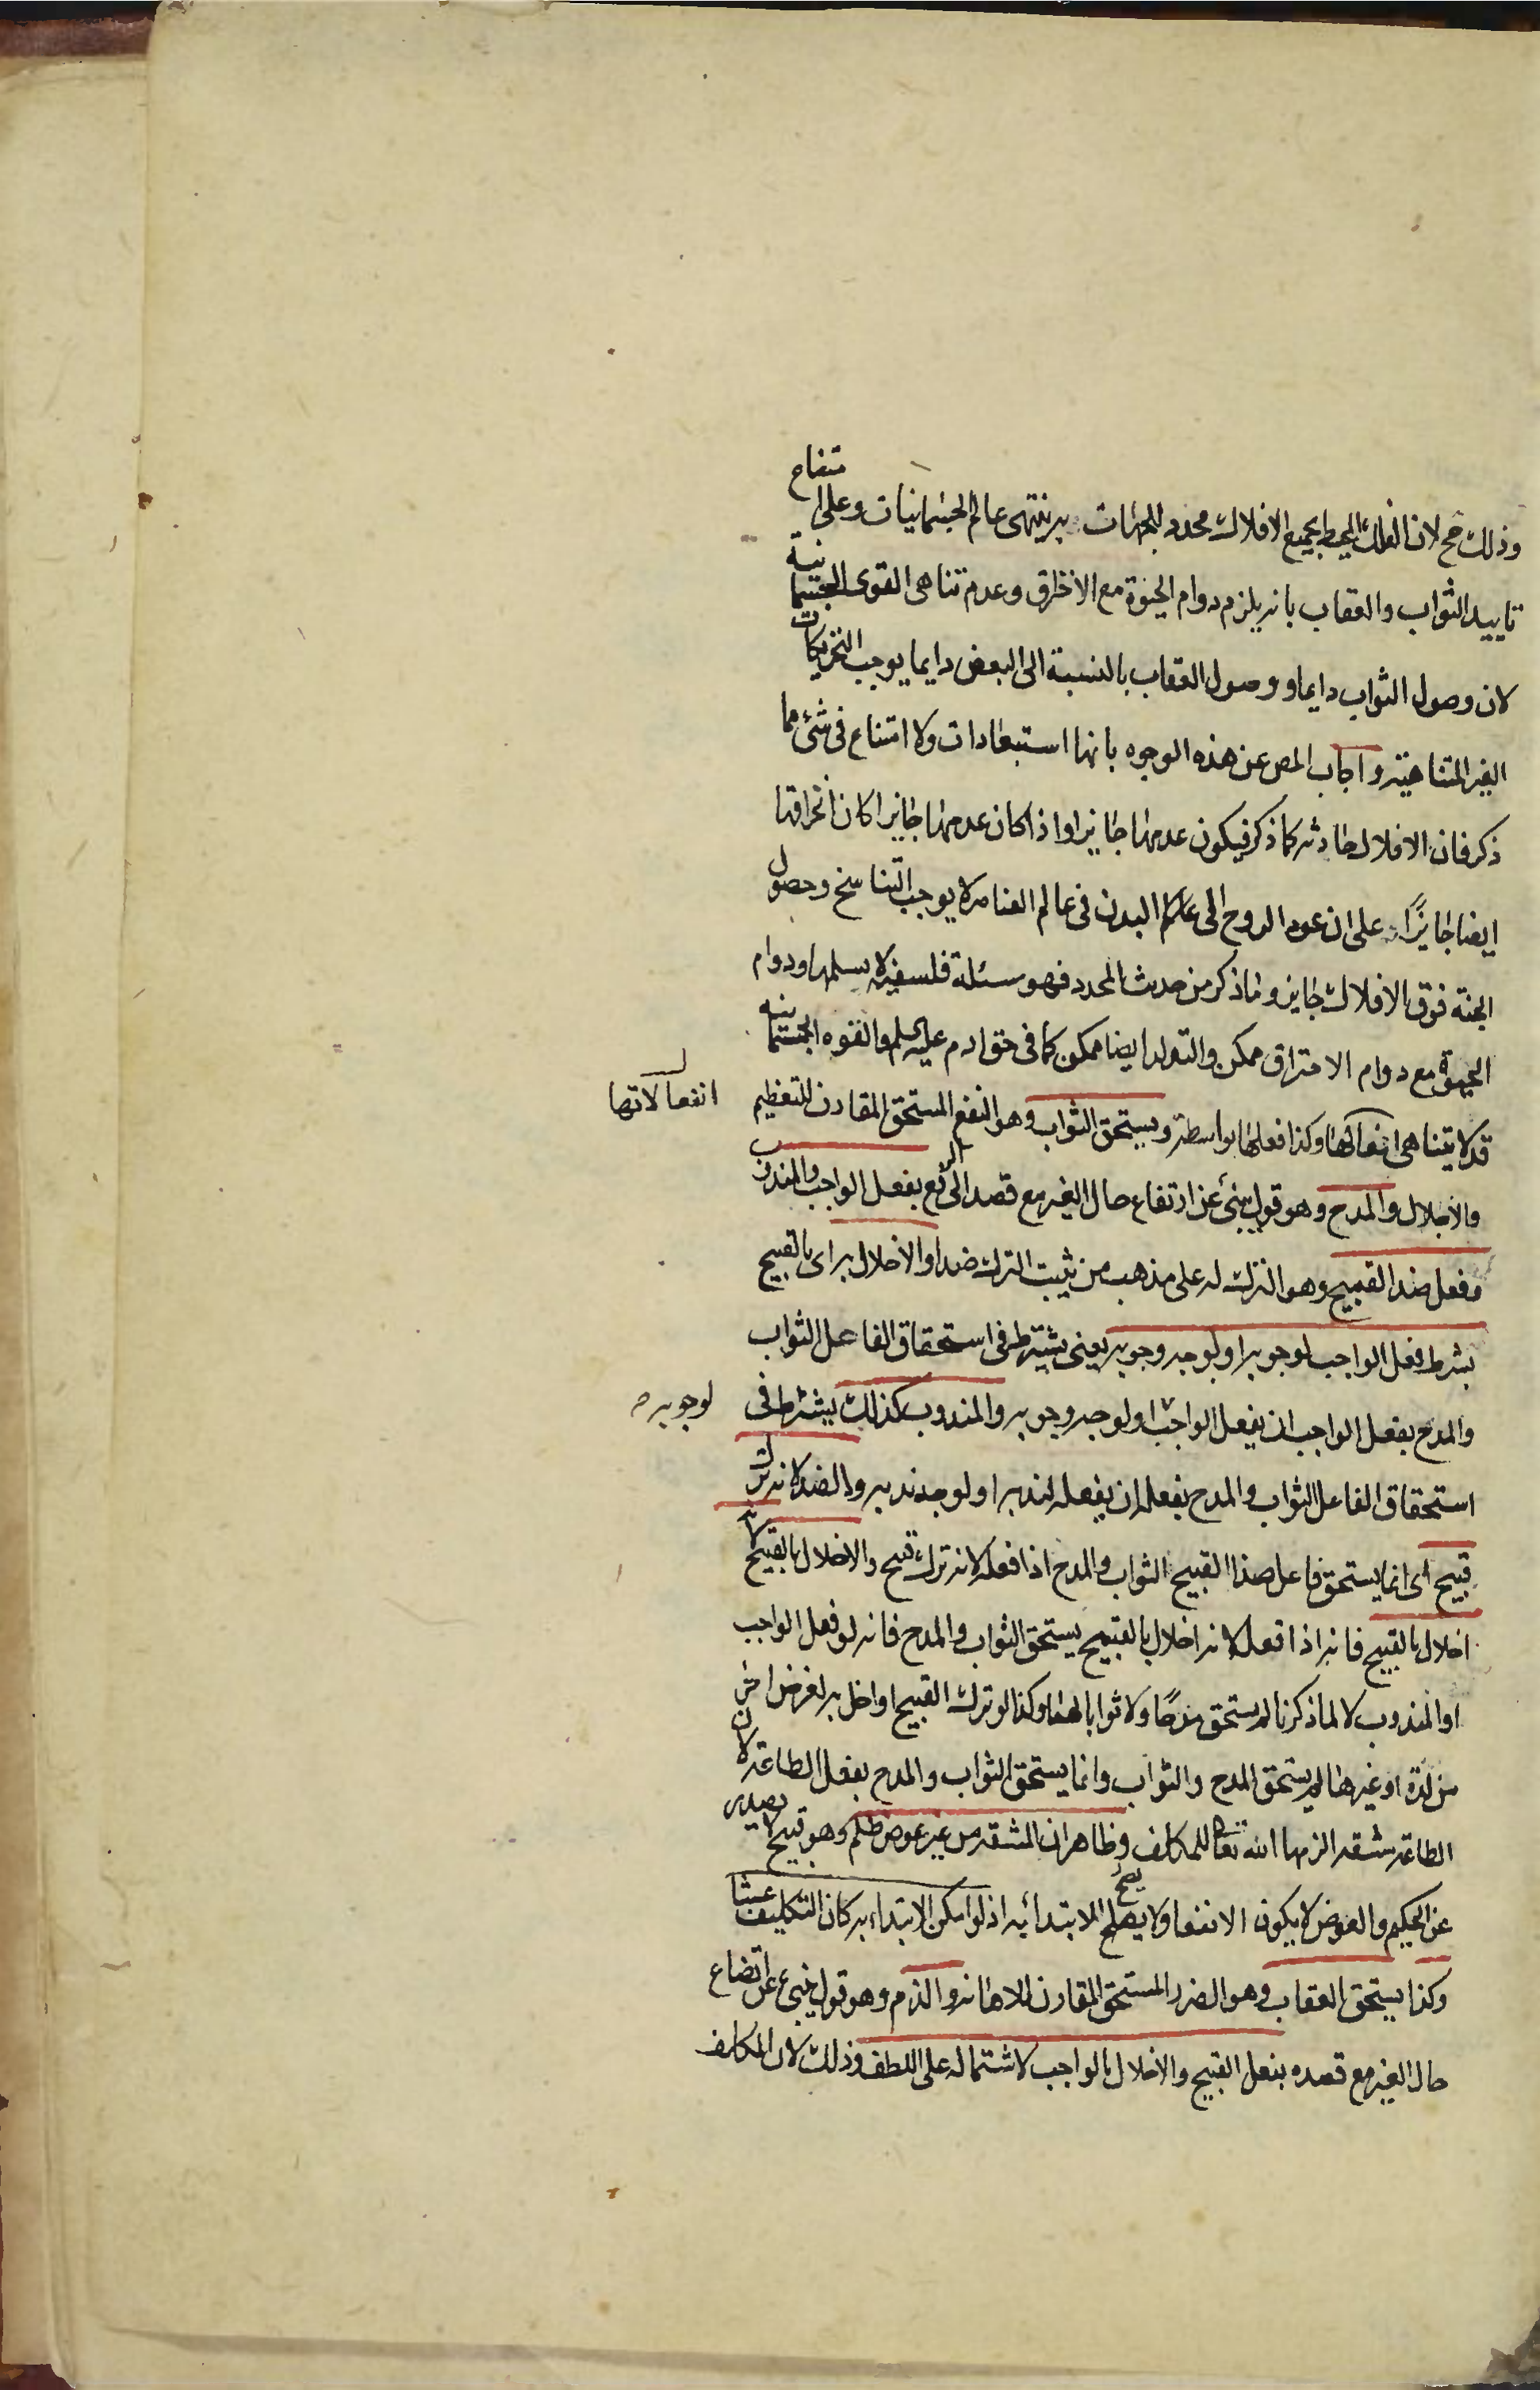 وذلك مح لان الفلك المحيط بجميع الافلاك محدد للجهات به ينتهى عالم الجسمانيات وعلى امتناع
تاييد الثواب والعقاب بانه يلزم دوام الحيوة مع الاحتراق وعدم تناهى القوى الجسمانية
لان وصول الثواب دايما و وصول العقاب بالنسبة الى البعض دايما يوجب التحريكات
الغير المتناهية واجاب المص عن هذه الوجوه بانها استبعادات ولا امتناع فى شئ مما
ذكر فان الافلاك حادثه كما ذكر فيكون عدمها جايزا واذا كان عدمها جايزا كان انخراقها
ايضا جايزًا على ان عود الروح الى البدن فى عالم العناصر لا يوجب التناسخ وحصول
الجنة فوق الافلاك جايز وما ذكر من حديث المحدد فهو مسئلة فلسفية لا نسلمها ودوام
الحيوة مع دوام الاحتراق ممكن والتولد ايضا ممكن كما فى حق ادم عليه السلم والقوه الجسمانيه
قد لا يتناهى انفعالاتها وكذا فعلها بواسطته ويستحق الثواب وهو النفع المستحق المقارن للتعظيم
انفعالاتها
والاجلال والمدح وهو قول ينبئ عن ارتفاع حال الغير مع قصد الى الرفع بفعل الواجب والمندوب
وفعل ضد القبيح وهو الترك له على مذهب من يثبت الترك ضدا والاخلال به اى بالقبيح
بشرط فعل الواجب لوجوبه او لوجه وجوبه يعنى يشترط فى استحقاق الفاعل الثواب
والمدح بفعل الواجب ان يفعل الواجب او لوجه وجوبه والمندوب كذلك يشترط فى
لوجوبه
استحقاق الفاعل الثواب والمدح بفعله ان يفعله لندبه او لوجه ندبه والضد لانه ترك
قبيح اى انما يستحق فاعل ضد القبيح الثواب والمدح اذا فعله لانه ترك قبيح والاخلال بالقبيح لانه
اخلال بالقبيح فانه اذا فعل لانه اخلال بالقبيح يستحق الثواب والمدح فانه لو فعل الواجب
او المندوب لا لما ذكرنا لم يستحق مدحًا ولا ثوابا لهما وكذا لو ترك القبيح او اخل به لغرض اخر
من لذة او غيرها لم يستحق المدح والثواب وانما يستحق الثواب والمدح بفعل الطاعة لان
الطاعة مشقه الزمها الله تعا للمكلف وظاهر ان المشقه من غير عوض ظلم وهو قبيح لا يصدر
عن الحكيم والعوض لا يكون الا نفعا ولا يصح الابتدا به اذ لو امكن الابتداء به كان التكليف عبثا
وكذا يستحق العقاب وهو الضرر المستحق المقارن للاهانة والذم وهو قول ينبئ عن اتضاع
حال الغير مع قصده بفعل القبيح والاخلال بالواجب لاشتماله على اللطف وذلك لان المكلف